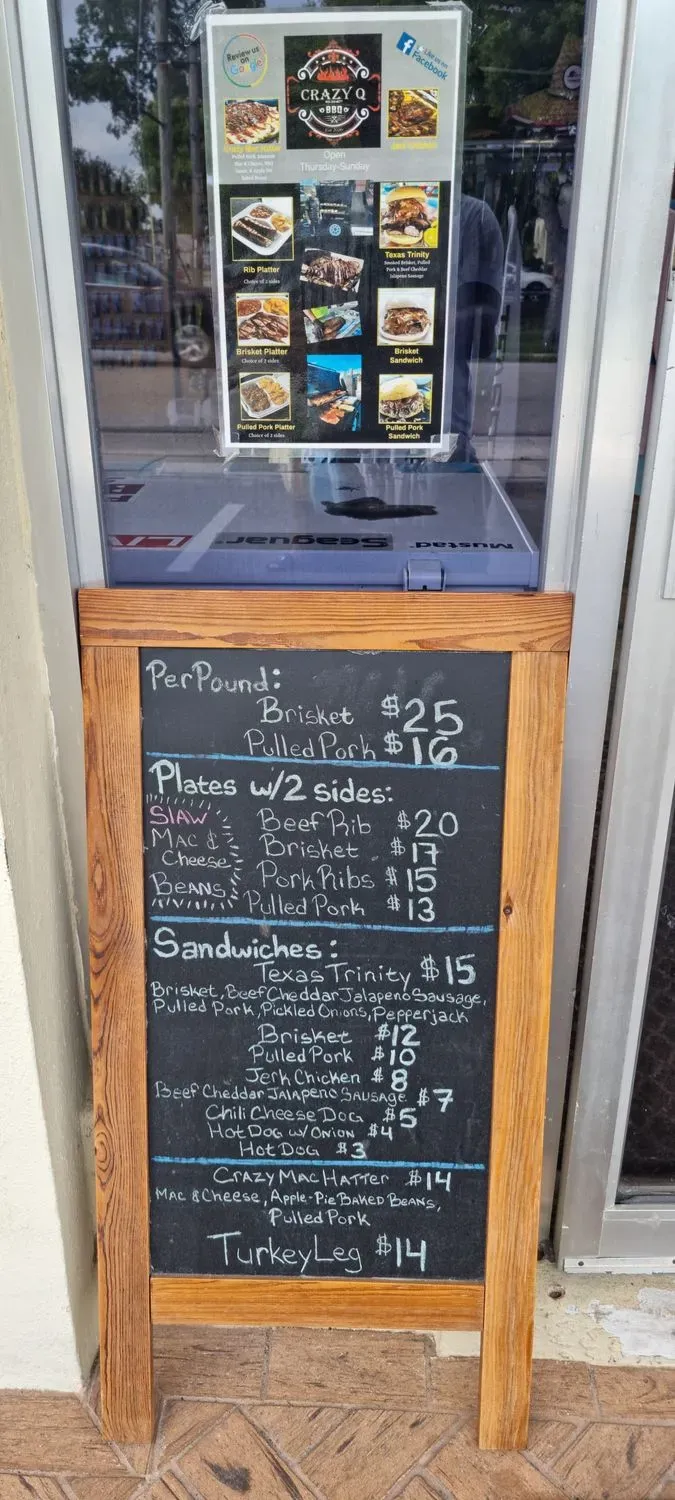 Review us
on
Google
CRAZY Q
BBQ
Like us on
Facebook
Open
Thursday-Sunday
Rib Platter
Choice of 2 sides
Texas Trinity
Smoked Brisket, Pulled
Pork & Beef Cheddar
Jalapeno Sausage
Brisket Platter
Choice of 2 sides
Brisket
Sandwich
Pulled Pork Platter
Choice of 2 sides
Pulled Pork
Sandwich
Seaguar
Mustad
Per Pound:
Brisket $25
Pulled Pork $16
Plates w/2 sides:
Slaw
Mac &
Cheese
Beans
Beef Rib $20
Brisket $17
Pork Ribs $15
Pulled Pork $13
Sandwiches:
Texas Trinity $15
Brisket, Beef Cheddar Jalapeno Sausage,
Pulled Pork, Pickled Onions, Pepperjack
Brisket $12
Pulled Pork $10
Jerk Chicken $8
Beef Cheddar Jalapeno Sausage $7
Chili Cheese Dog $5
Hot Dog w/ Onion $4
Hot Dog $3
Crazy Mac Hatter $14
Mac & Cheese, Apple-Pie Baked Beans,
Pulled Pork
Turkey Leg $14